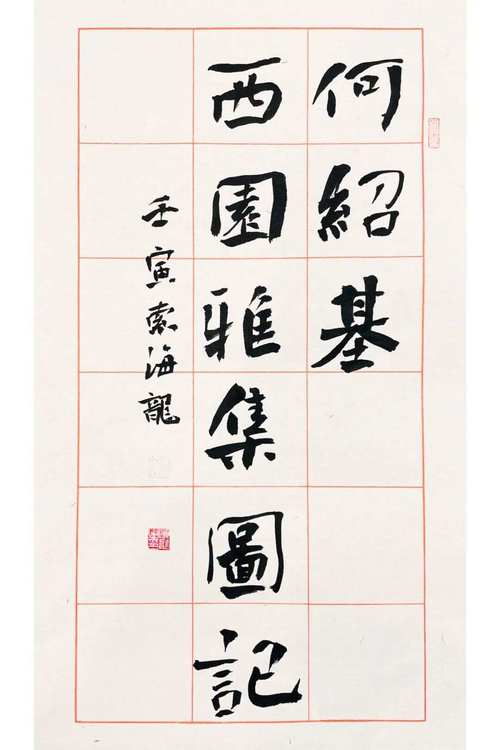 何紹基
西園雅集圖記
壬寅索海龍